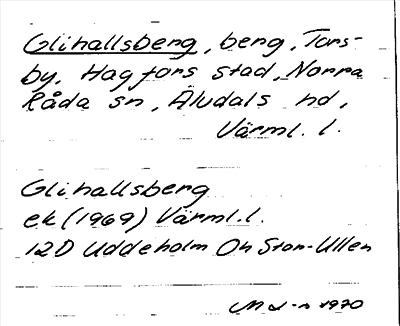 Glihallsberg, berg, Tors-
by, Hagfors stad, Norra
Råda sn, Äludals hd,
Värml. l.
Glihallsberg
ek (1969) Värml. l.
12D Uddeholm Oh Stor-Ullen
1970